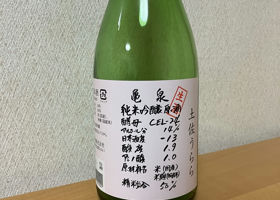 亀泉
純米吟醸原酒
生
酵母 CEL-24
アルコール分 14%
日本酒度 -13
酸度 1.9
アミノ酸 1.0
原材料名 米(国産)
精米歩合 50%
土佐うらら